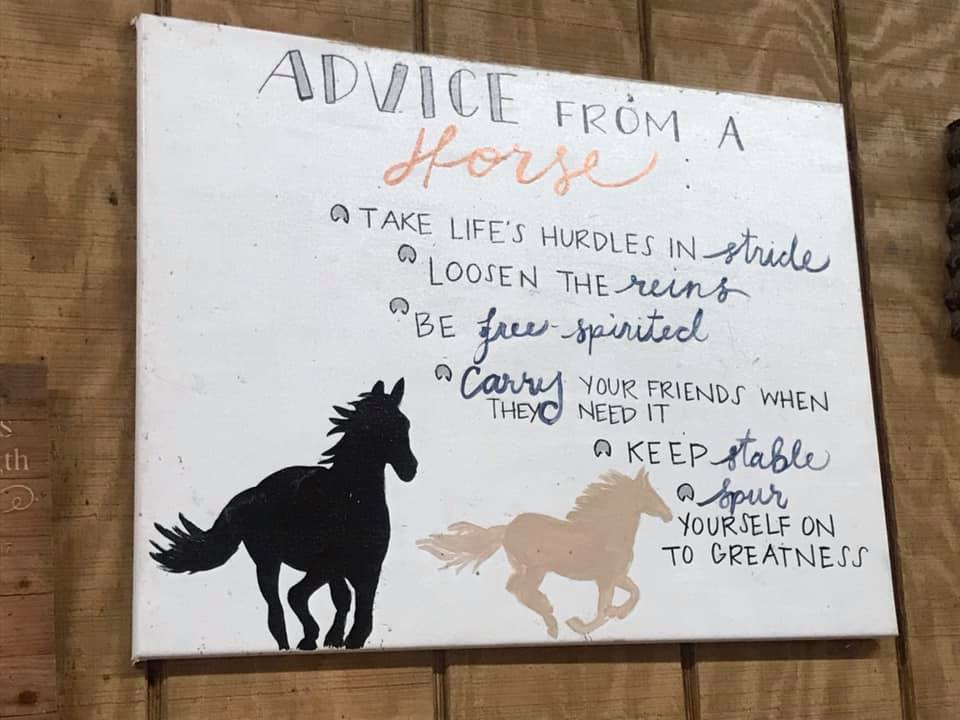 ADVICE FROM A
Horse
TAKE LIFE'S HURDLES IN stride
LOOSEN THE reins
BE free-spirited
Carry YOUR FRIENDS WHEN
THEY NEED IT
KEEP stable
spur
YOURSELF ON
TO GREATNESS
th